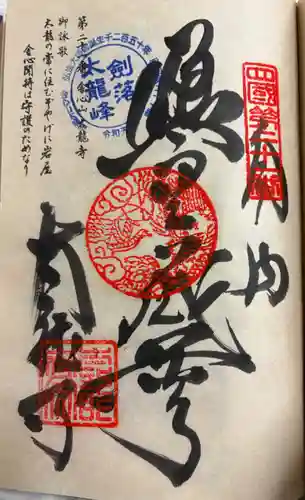 奉納
虚空蔵尊
太龍寺
四國第二十一番
第二十一番 舎心山 太龍寺
御詠歌
太龍の常に住むぞやげに岩屋
舎心聞持は守護のためなり
弘法大師御誕生千二百五十年
劍
大龍峰
落